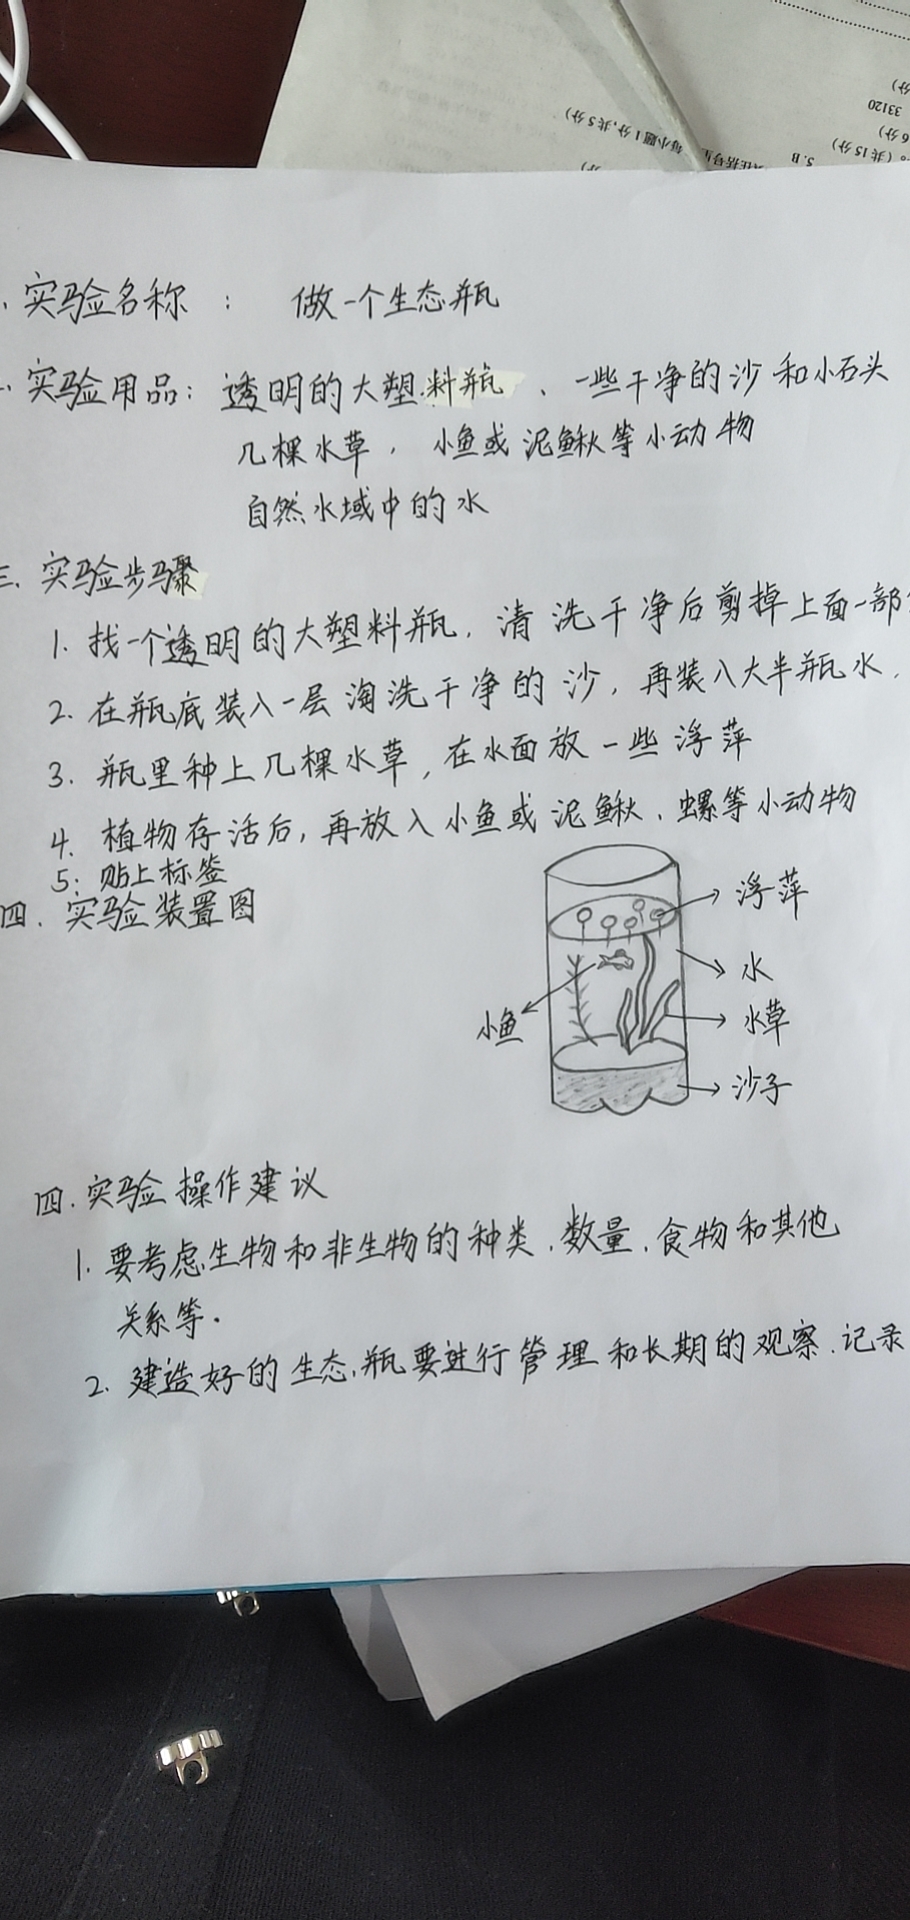 每小题1分,共5分)
分)
5.B
(共15分)
6分)
33120
分)
、实验名称 : 做一个生态瓶
、实验用品: 透明的大塑料瓶 、一些干净的沙和小石头
几棵水草, 小鱼或泥鳅等小动物
自然水域中的水
三、实验步骤
1. 找一个透明的大塑料瓶, 清洗干净后剪掉上面一部
2. 在瓶底装入一层淘洗干净的沙, 再装入大半瓶水,
3. 瓶里种上几棵水草, 在水面放一些浮萍
4. 植物存活后, 再放入小鱼或泥鳅、螺等小动物
5: 贴上标签
四. 实验装置图
浮萍
水
小鱼
水草
沙子
四. 实验操作建议
1. 要考虑生物和非生物的种类、数量、食物和其他
关系等.
2. 建造好的生态瓶要进行管理和长期的观察、记录